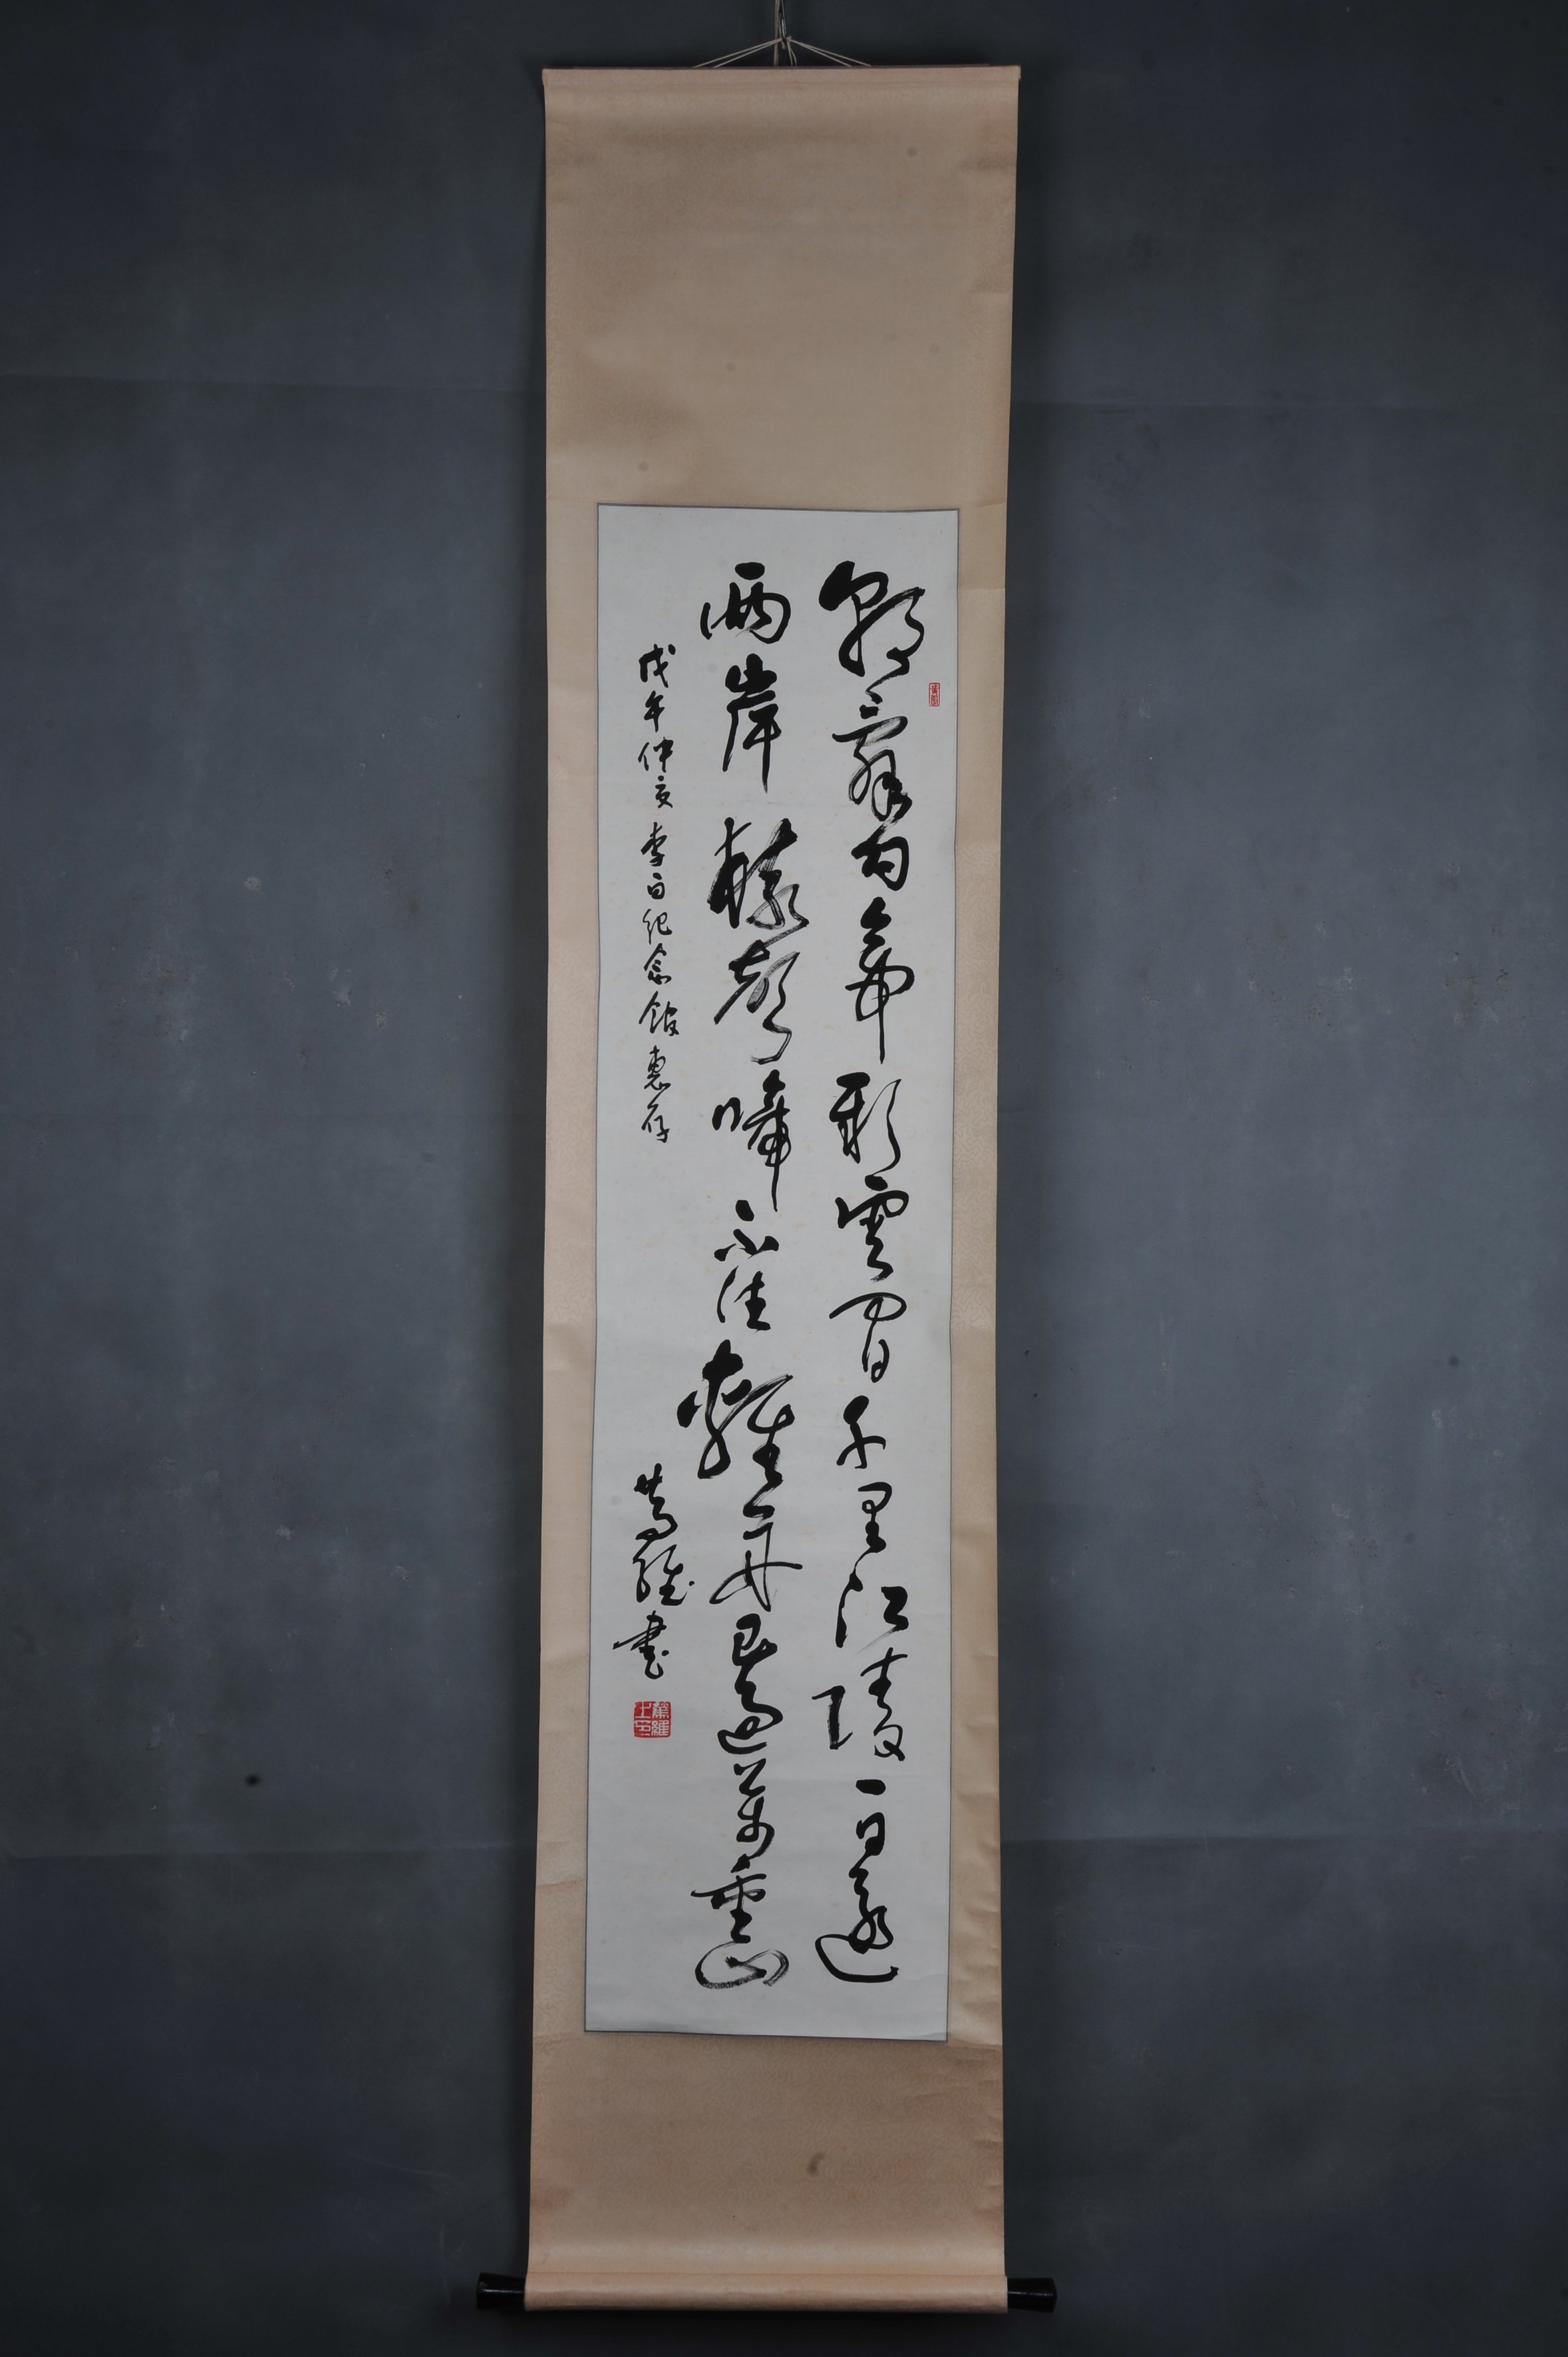 朝辭白帝彩雲間千里江陵一日還
兩岸猿聲啼不住輕舟已過萬重山
戊午仲夏李白紀念館惠存
維書